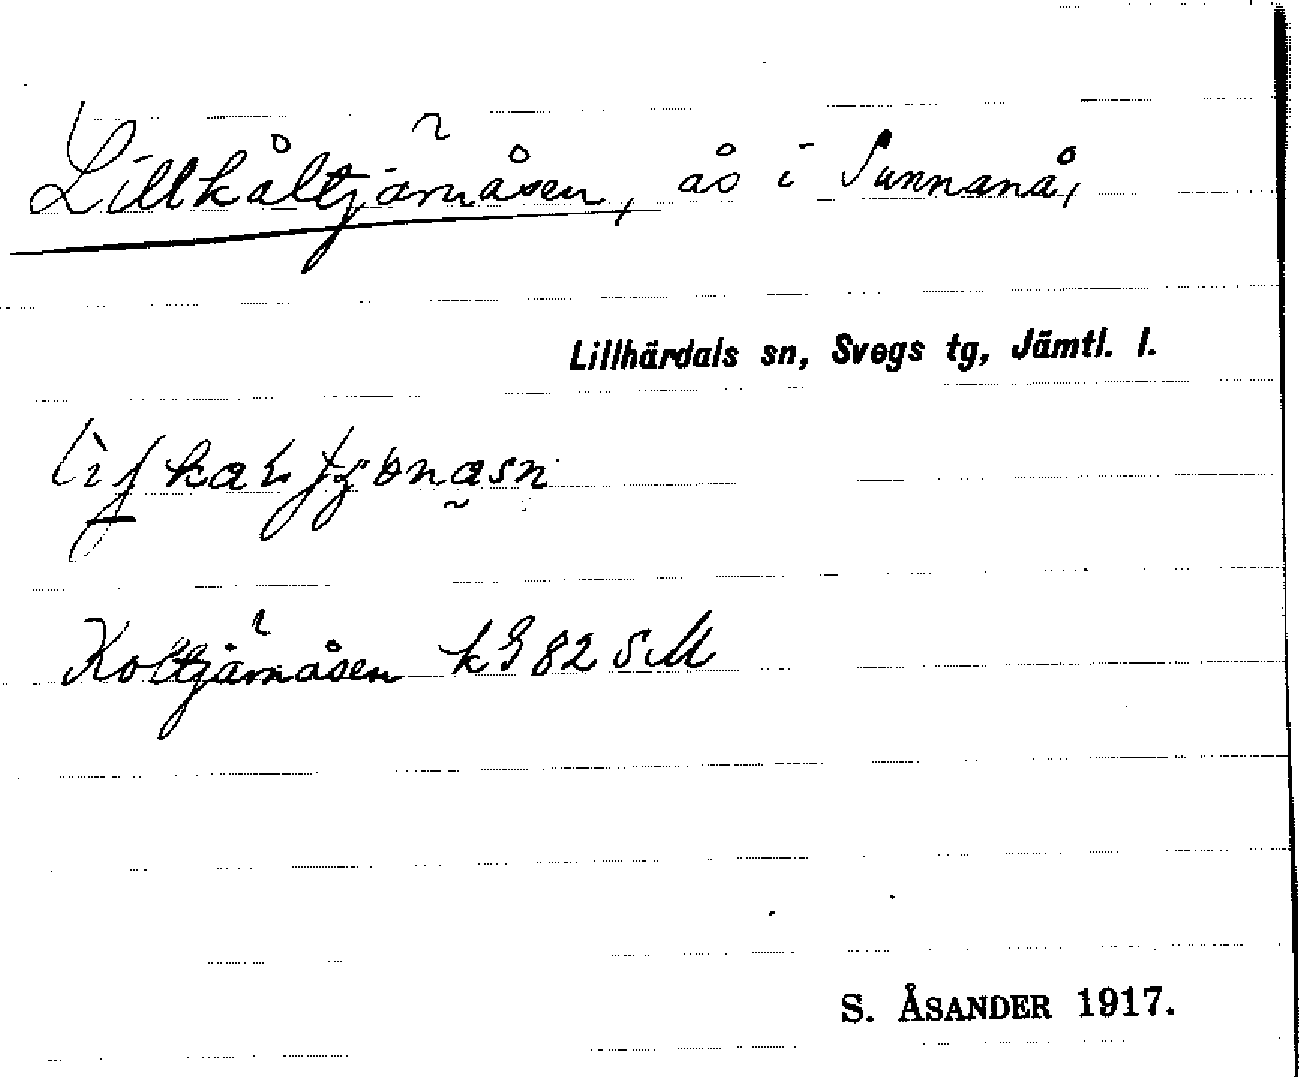 Lillkåltjärnåsen, ås i Sunnanå,
Lillhärdals sn, Svegs tg, Jämtl. l.
Koltjärnåsen kG 82 SM
S. ÅSANDER 1917.